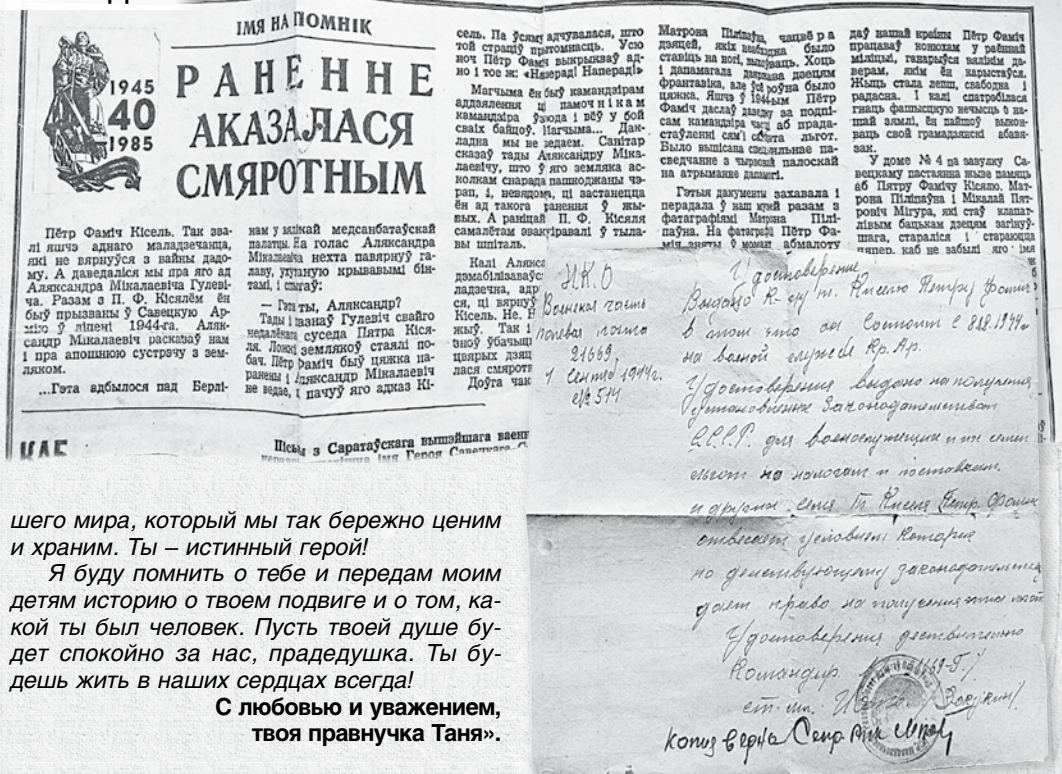 ІМЯ НА ПОМНІК
1945
40
1985
РАНЕННЕ
АКАЗАЛАСЯ
СМЯРОТНЫМ
Пётр Фаміч Кісель. Так зва-
лі яшчэ аднаго маладзечанца,
які не вярнуўся з вайны дадо-
му. А даведаліся мы пра яго ад
Аляксандра Мікалаевіча Гулеві-
ча. Разам з П. Ф. Кісялём ён
быў прызваны ў Савецкую Ар-
мію ў ліпені 1944-га. Аляк-
сандр Мікалаевіч расказаў нам
і пра апошнюю сустрэчу з зем-
ляком.
...Гэта адбылося пад Берлі-
нам у вялікай медсанбатаўскай
палатцы. На голас Аляксандра
Мікалаевіча нехта павярнуў га-
лаву, укутаную крывавымі бін-
тамі, і спытаў:
— Гэта ты, Аляксандр?
Тады і пазнаў Гулевіч свайго
недалёкага суседа Пятра Кіся-
ля. Ложкі землякоў стаялі по-
бач. Пётр Фаміч быў цяжка па-
ранены і Аляксандр Мікалаевіч
не ведае, ці пачуў яго адказ Кі-
сель. Па ўсяму адчувалася, што
той страціў прытомнасць. Усю
ноч Пётр Фаміч выкрыкваў ад-
но і тое ж: «Наперад! Наперад!»
Магчыма ён быў камандзірам
аддзялення ці памочнікам
камандзіра ўзвода і вёў у бой
сваіх байцоў. Магчыма... Дак-
ладна мы не ведаем. Санітар
сказаў тады Аляксандру Міка-
лаевічу, што ў яго земляка ас-
колкам снарада пашкоджаны чэ-
рап, і, невядома, ці застанецца
ён ад такога ранення ў жы-
вых. А раніцай П. Ф. Кісяля
самалётам эвакуіравалі ў тыла-
вы шпіталь.
Калі Алякса
дэмабілізаваўс
ладзечна, адр
ся, ці вярнуў
Кісель. Не. Н
жыў. Так і
зноў ўбачыць
цвярых дзяц
лася смяротн
Доўга чак
Матрона Піліпаўна, чацвёра
дзяцей, якіх неабходна было
ставіць на ногі, выхоўваць. Хоць
і дапамагала дзяржава дзецям
франтавіка, але ўсё роўна было
цяжка. Яшчэ ў 1944-ым Пётр
Фаміч даслаў даведку за подпі-
сам камандзіра часці аб прада-
стаўленні сям'і салдата льгот.
Было выпісана спецыяльнае па-
сведчанне з чырвонай палоскай
на атрыманне дапамогі.
Гэтыя дакументы захавала і
перадала ў наш музей разам з
фатаграфіямі Матрона Пілі-
паўна. На фатаграфіі Пётр Фа-
міч зняты ў момант абмалоту
даў нашай краіны Пётр Фаміч
працаваў конюхам у раённай
міліцыі, гаварыўся вялікім да-
верам, якім ён карыстаўся.
Жыць стала лепш, свабодна і
радасна. І калі спатрэбілася
гнаць фашысцкую нечысць з на-
шай зямлі, ён пайшоў выкон-
ваць свой грамадзянскі абавя-
зак.
У доме № 4 па завулку Са-
вецкаму пастаянна жыве памяць
аб Пятру Фамічу Кісялю. Мат-
рона Піліпаўна і Мікалай Пят-
ровіч Мігура, які стаў клапат-
лівым бацькам дзецям загінуў-
шага, стараліся і стараюцца
цяпер, каб не забылі яго імя
Пісьм з Саратаўскага вышэйшага ваенн
імя Героя Савецкага С
Н.К.О
Воинская часть
полевая почта
21669
1 Сентяб 1944г.
№ 514
Удостоверение
Выдано К-цу т. Киселю Петру Фомич
в том что он Состоит с 8.8.1944г
на военой службе Кр. Ар.
Удостоверения выдано на получения
установленых Законодательством
С.С.С.Р. для военослужащих и их семей
льгот по налогам и поставкам
и другим. Семя Тв Киселя Петр. Фомич
отвечает условием Которая
по действующему законодательству
дает право на получения этих льгот
Удостоверения действительно
Командир
ст. ли.
Копия верна
шего мира, который мы так бережно ценим
и храним. Ты – истинный герой!
Я буду помнить о тебе и передам моим
детям историю о твоем подвиге и о том, ка-
кой ты был человек. Пусть твоей душе бу-
дет спокойно за нас, прадедушка. Ты бу-
дешь жить в наших сердцах всегда!
С любовью и уважением,
твоя правнучка Таня».